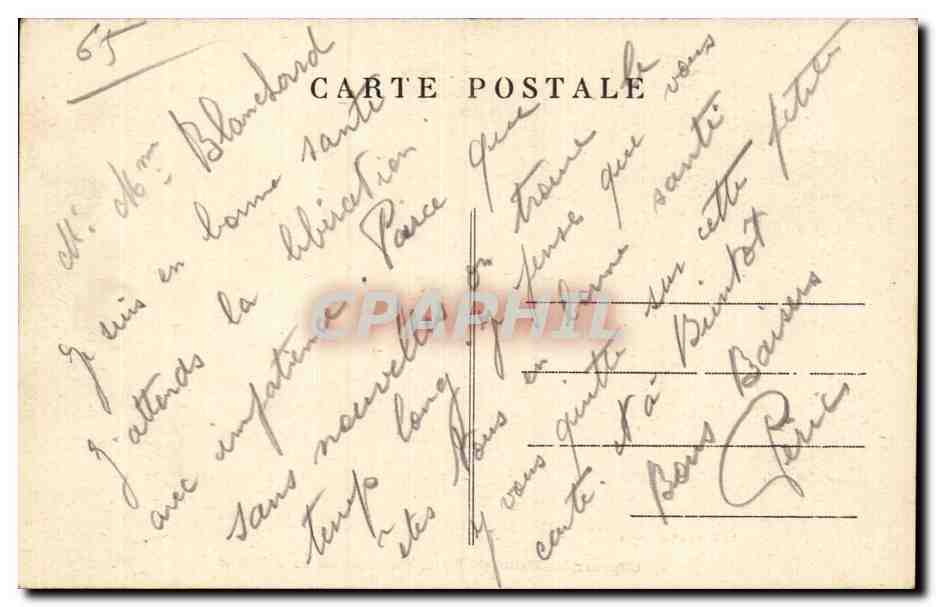 65
CARTE POSTALE
Mr. Mme Blanchard
Je suis en bonne santé
J'attends la libération
avec impatience. Parce que
sans nouvelles on trouve le
temps long. Je pense que vous
êtes Vous en bonne santé
Je vous quitte sur cette petite
carte. et à Bientôt
Bons Baisers
CPAPHIL